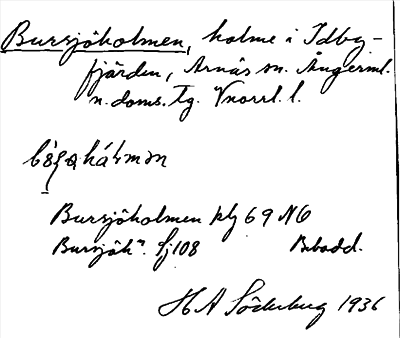 Bursjöholmen, holme i Idby-
fjärden, Arnäs sn. Ångerml.
n. doms. tg. Vnorrl. l.
Bursjöholmen plg 69 NO
Bursjöh:n. Sj 108 Bebodd.
H A Söderberg 1936